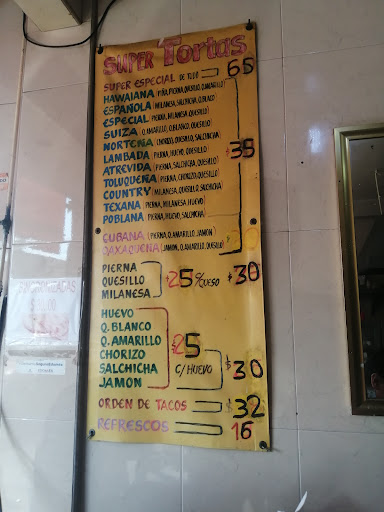 SUPER Tortas
SUPER ESPECIAL DE TODO 65
HAWAIANA (PIÑA, PIERNA, QUESILLO, Q.AMARILLO)
ESPAÑOLA (MILANESA, SALCHICHA, Q.BLACO)
ESPECIAL (PIERNA, MILANESA, QUESILLO)
SUIZA (Q.AMARILLO, Q.BLANCO, QUESILLO)
NORTEÑA (CHORIZO, QUESILLO, SALCHICHA)
LAMBADA (PIERNA, HUEVO, QUESILLO) 35
ATREVIDA (PIERNA, SALCHICHA, QUESILLO)
TOLUQUEÑA (PIERNA, CHORIZO, QUESILLO)
COUNTRY (MILANESA, QUESILLO, SALCHICHA)
TEXANA (PIERNA, MILANESA, HUEVO)
POBLANA (PIERNA, HUEVO, SALCHICHA)
CUBANA (PIERNA, Q.AMARILLO, JAMON)
OAXAQUEÑA (JAMON, Q.AMARILLO, QUESILLO)
PIERNA
QUESILLO $25 %QUESO $30
MILANESA
HUEVO
Q.BLANCO
Q.AMARILLO $25
CHORIZO C/HUEVO $30
SALCHICHA
JAMÓN
ORDEN DE TACOS $32
REFRESCOS 16